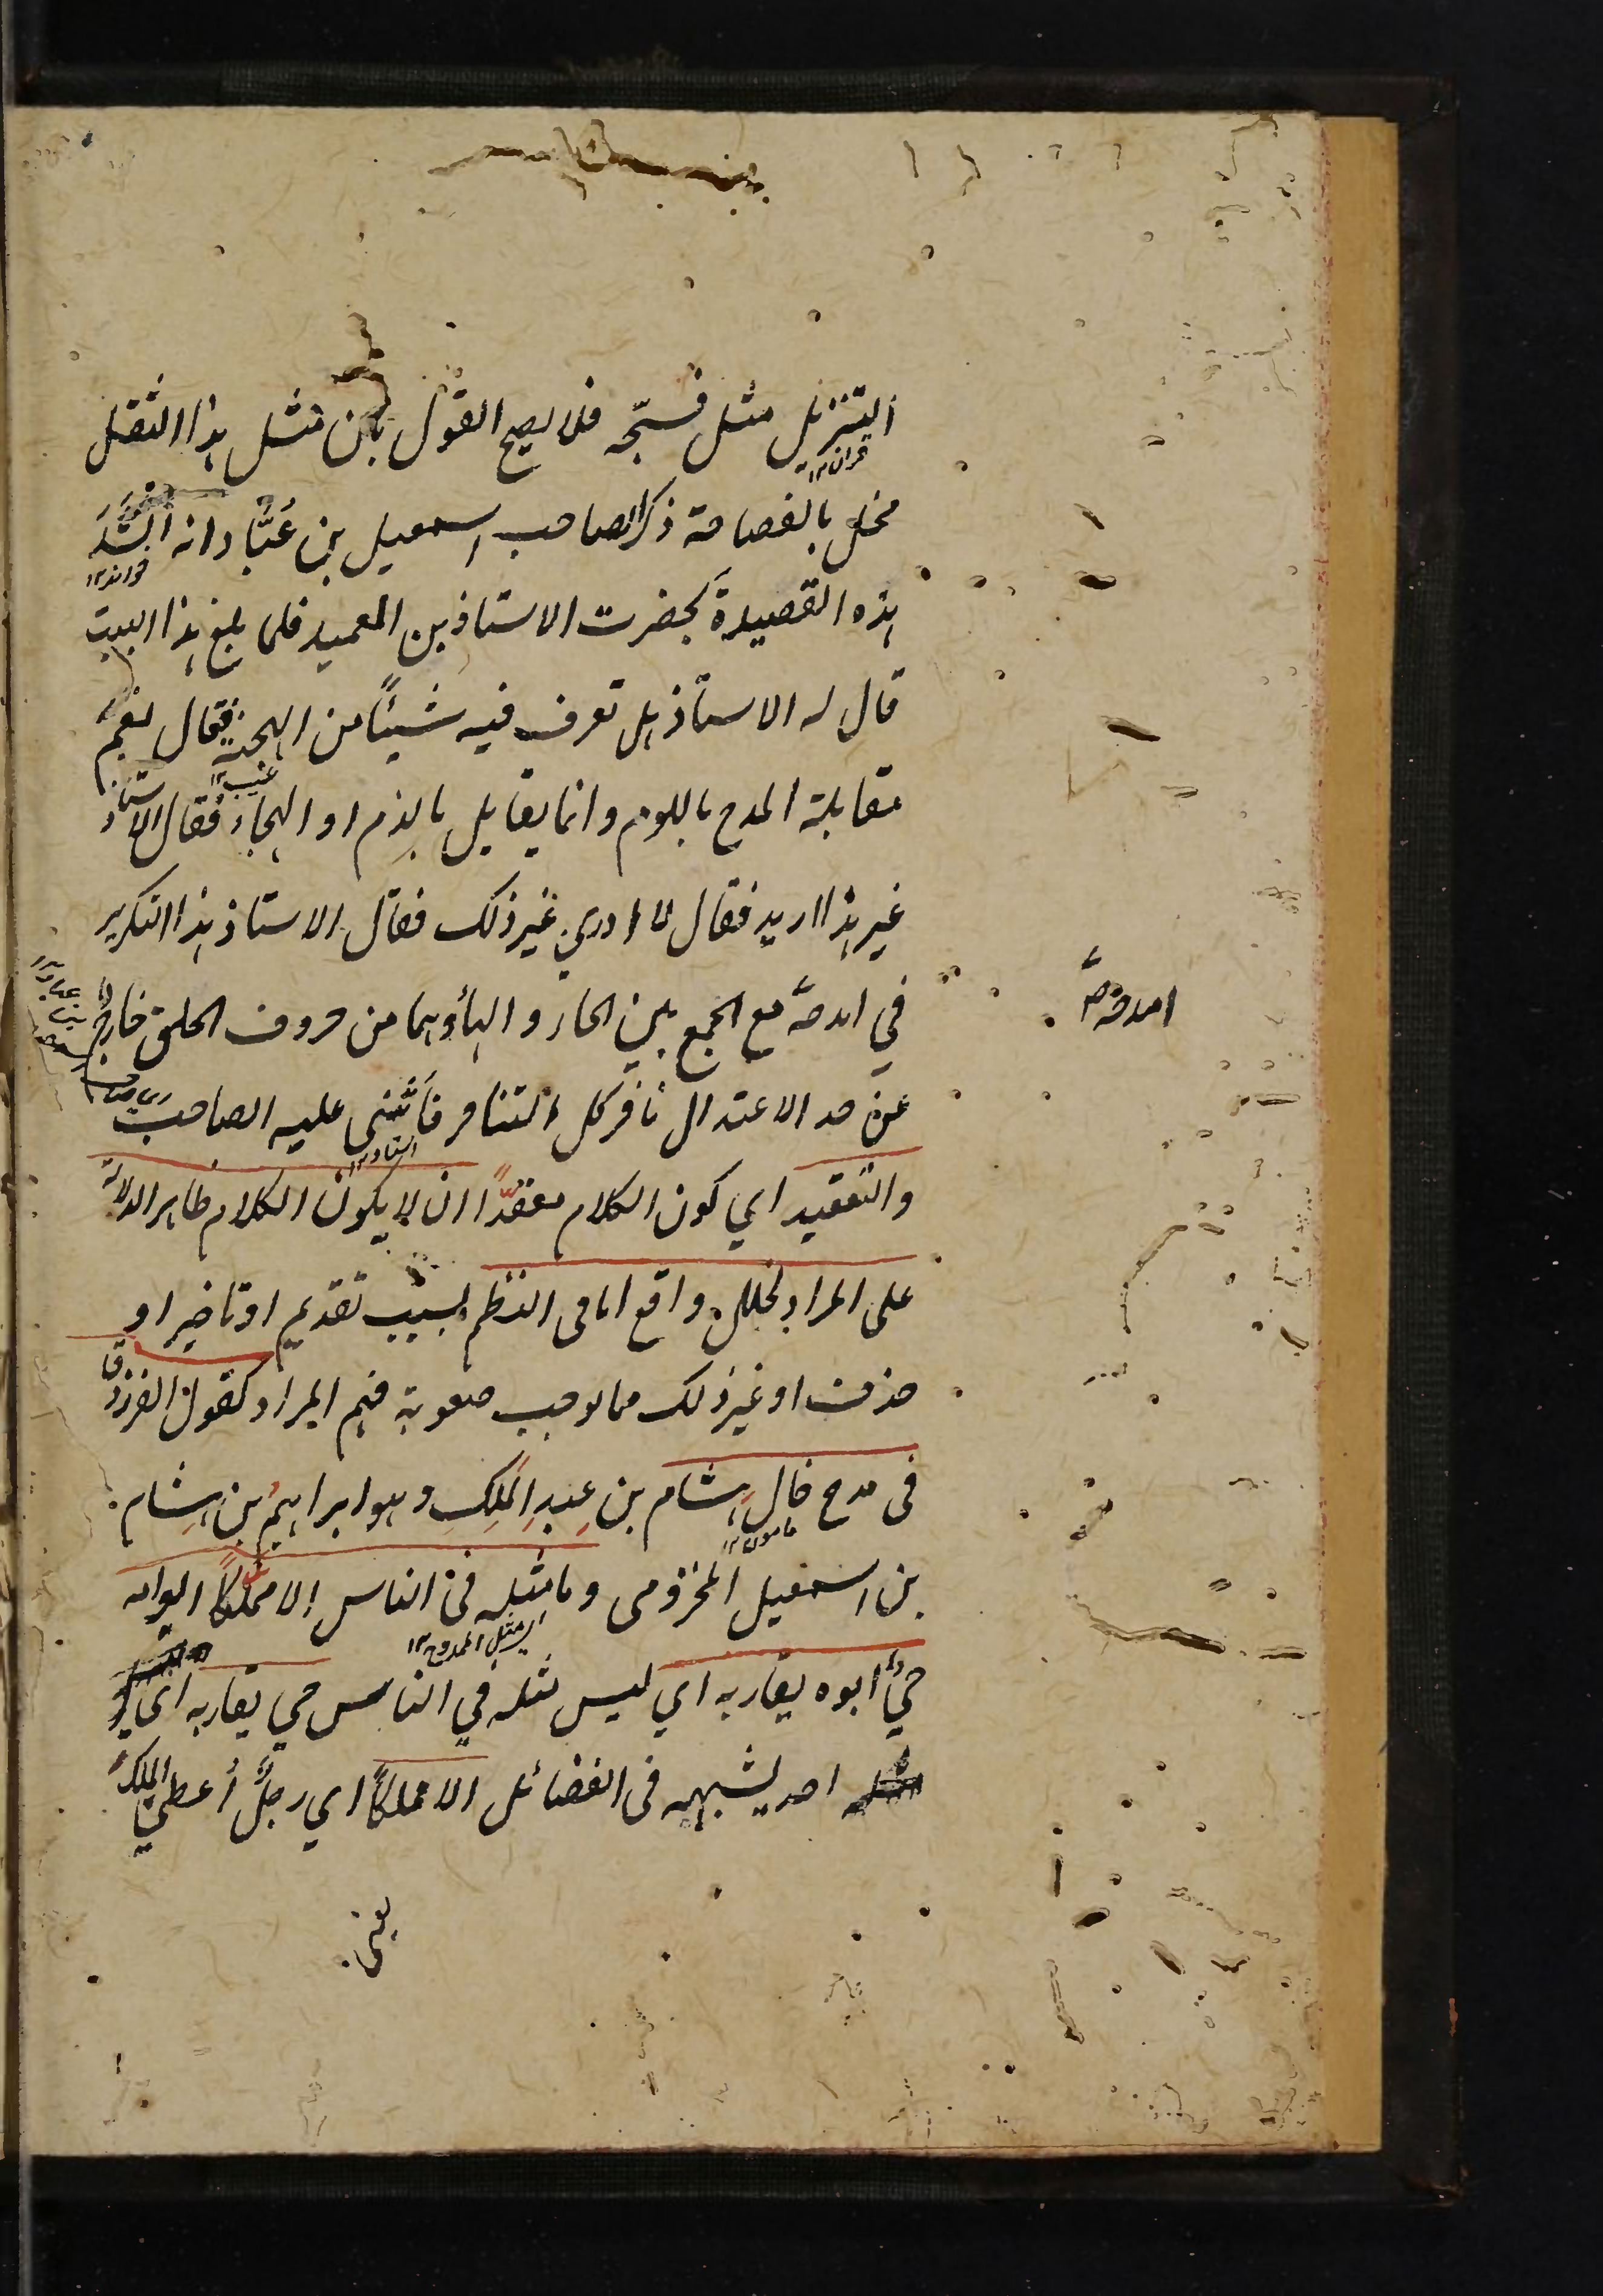 التنزيل مثل فسبّحه فلا يصح القول بان مثل هذا الثقل
قران ١٢
مخل بالفصاحة ذكر الصاحب اسمعيل بن عَبّاد انه انشَدَ
خواند ١٢
هذه القصيدة بحضرت الاستاذ بن العميد فلما بلغ هذا البيت
قال له الاستاذ هل تعرف فيه شيئًا من الهجنة فقال نعم
عيب ١٢
مقابلة المدح باللوم وانما يقابل بالذم او الهجاء فقال الاستاذ
غير هذا اريد فقال لا ادري غير ذلك فقال الاستاذ هذا التكرير
في امدحه مع الجمع بين الحاء والهاء وهما من حروف الحلق خارج
امدحه
عن حد الاعتدال نافر كل التنافر فَأَثنى عليه الصاحب
استاد ١٢
والتعقيد اي كون الكلام معقدًا ان لا يكون الكلام ظاهر الدلالة
على المراد لخلل واقع اما فى النظم بسبب تقديم او تاخير او
حذف او غير ذلك مما يوجب صعوبة فهم المراد كقول الفرزدق
فى مدح خالِ هشام بن عبدِ الملِكِ وهو ابراهيمُ بن هشام
مامون ١٢
بن اسمعيل المخزومى وما مثله فى الناس الا مملكًا ابو امه
اى مثل الممدوح ١٢
حيٌ ابوه يقاربه اي ليس مثله في الناس حي يقاربه اى
احد يشبهه فى الفضائل الا مملكًا اي رجلٌ أُعطيَ الملكَ
يعنى